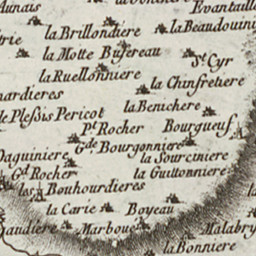 Aunais
la Brillondiere
Bvantaille
la Beaudouini
la Motte
Busereau
St Cyr
la Ruellonniere
la Chinfretiere
nardieres
la Benichere
le Plessis Pericot
Pt Rocher
Bourgueuf
Gde Bourgonniere
Daguiniere
la Sourciniere
Gd Rocher
la Guittonniere
les Bouhourdieres
la Carie
Boyeau
audiere
Marbouc
Malabry
la Bonniere